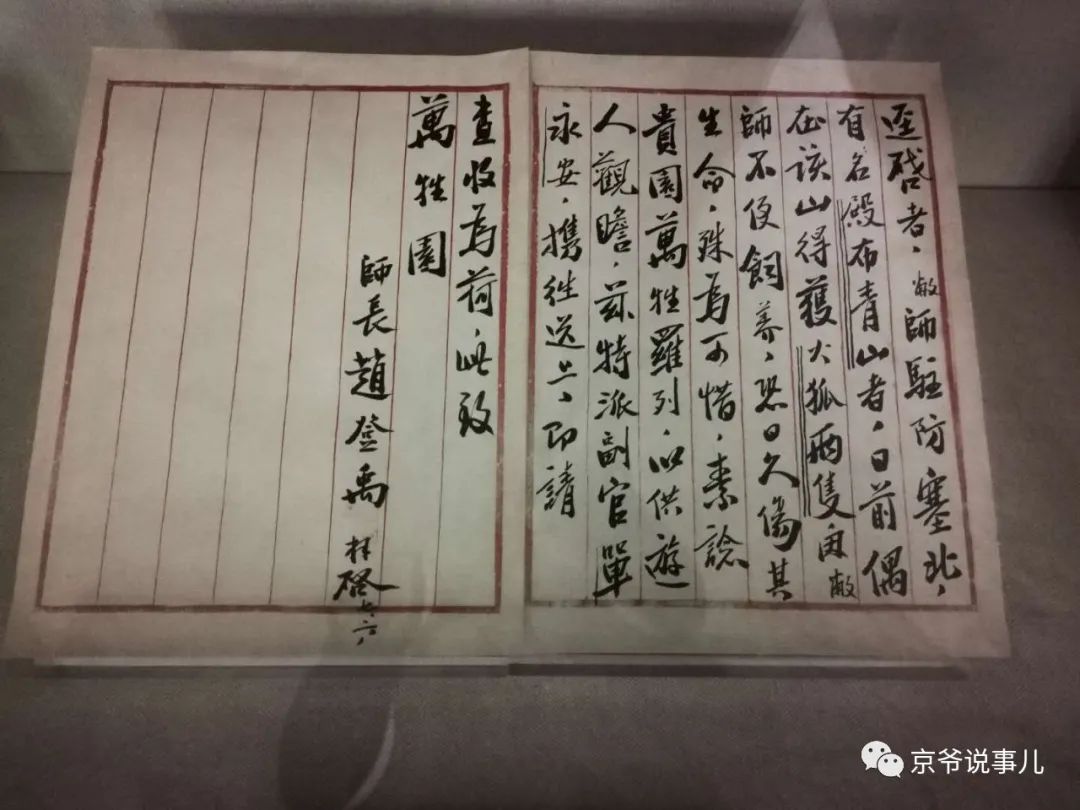 逕啓者，敝師駐防塞北，
有名殿布青山者，日前偶
在该山得獲犬狐兩隻，因敝
師不便飼养，恐日久傷其
生命，殊为可惜，素諗
貴園萬牲羅列，以供遊
人觀瞻，兹特派副官單
永安，携往送上，即請
查收为荷，此致
萬牲園
師長趙登禹 拜啓 七、六、
京爷说事儿